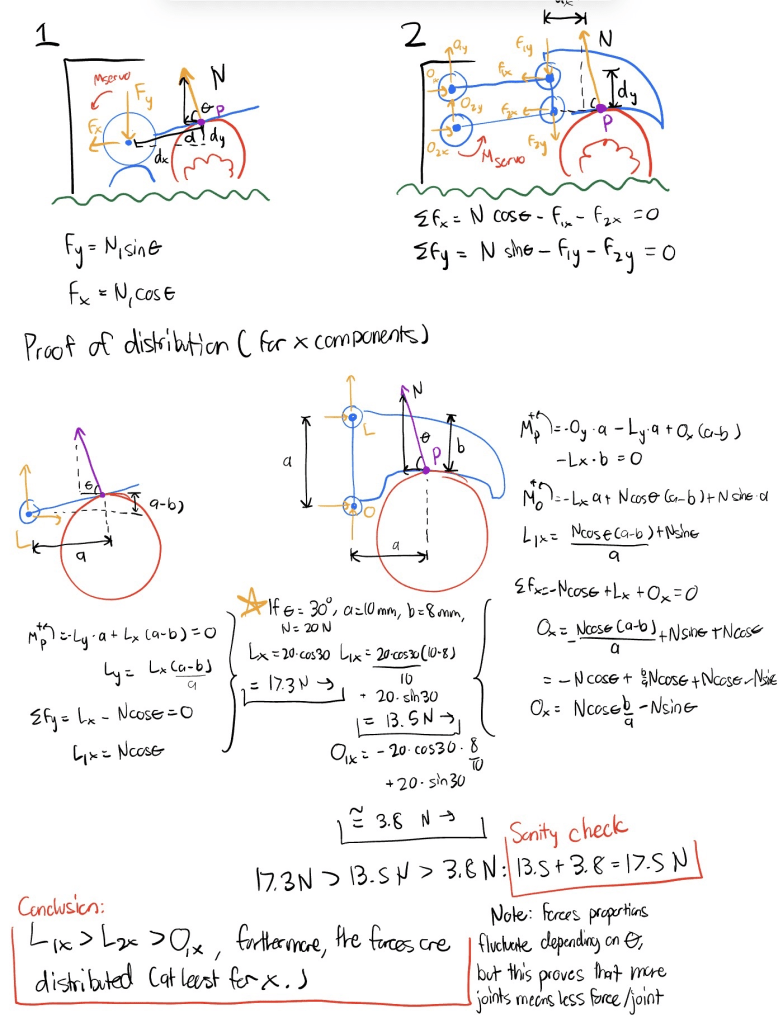 1
2
Mservo
Fy
N
Fx
θ
P
d
dy
dx
N
Oy
F1y
Ox
F1x
O2y
F2x
dy
P
O2x
Mservo
F2y
ΣFx = N cosθ - F1x - F2x = 0
ΣFy = N sinθ - F1y - F2y = 0
Fy = N1 sinθ
Fx = N1 cosθ
Proof of distribution ( for x components)
N
L
θ
P
b
a
O
a
θ
a-b)
L
a
Mp = -Oy·a - Ly·a + Ox (a-b)
-Lx·b = 0
Mo = -Lx a + Ncosθ (a-b) + N sinθ·a
L1x = Ncosθ(a-b) + Nsinθ
a
ΣFx = -Ncosθ + Lx + Ox = 0
Ox = -Ncosθ(a-b) + Nsinθ + Ncosθ
a
= -Ncosθ + b/a Ncosθ + Ncosθ - Nsinθ
Ox = Ncosθ b/a - Nsinθ
Mp = -Ly·a + Lx (a-b) = 0
Ly = Lx (a-b)
a
ΣFy = Lx - Ncosθ = 0
L1x = Ncosθ
If θ = 30°, a=10mm, b=8mm,
N=20N
Lx = 20·cos30
= 17.3N →
L1x = 20·cos30(10-8)
10
+ 20·sin30
= 13.5N →
O1x = -20·cos30·8
10
+20·sin30
≅ 3.8 N →
17.3N > 13.5N > 3.8N:
Sanity check
13.5 + 3.8 = 17.5 N
Conclusion:
L1x > L2x > O1x, furthermore, the forces are
distributed (at least for x.)
Note: Forces proportions
fluctuate depending on θ,
but this proves that more
joints means less force/joint